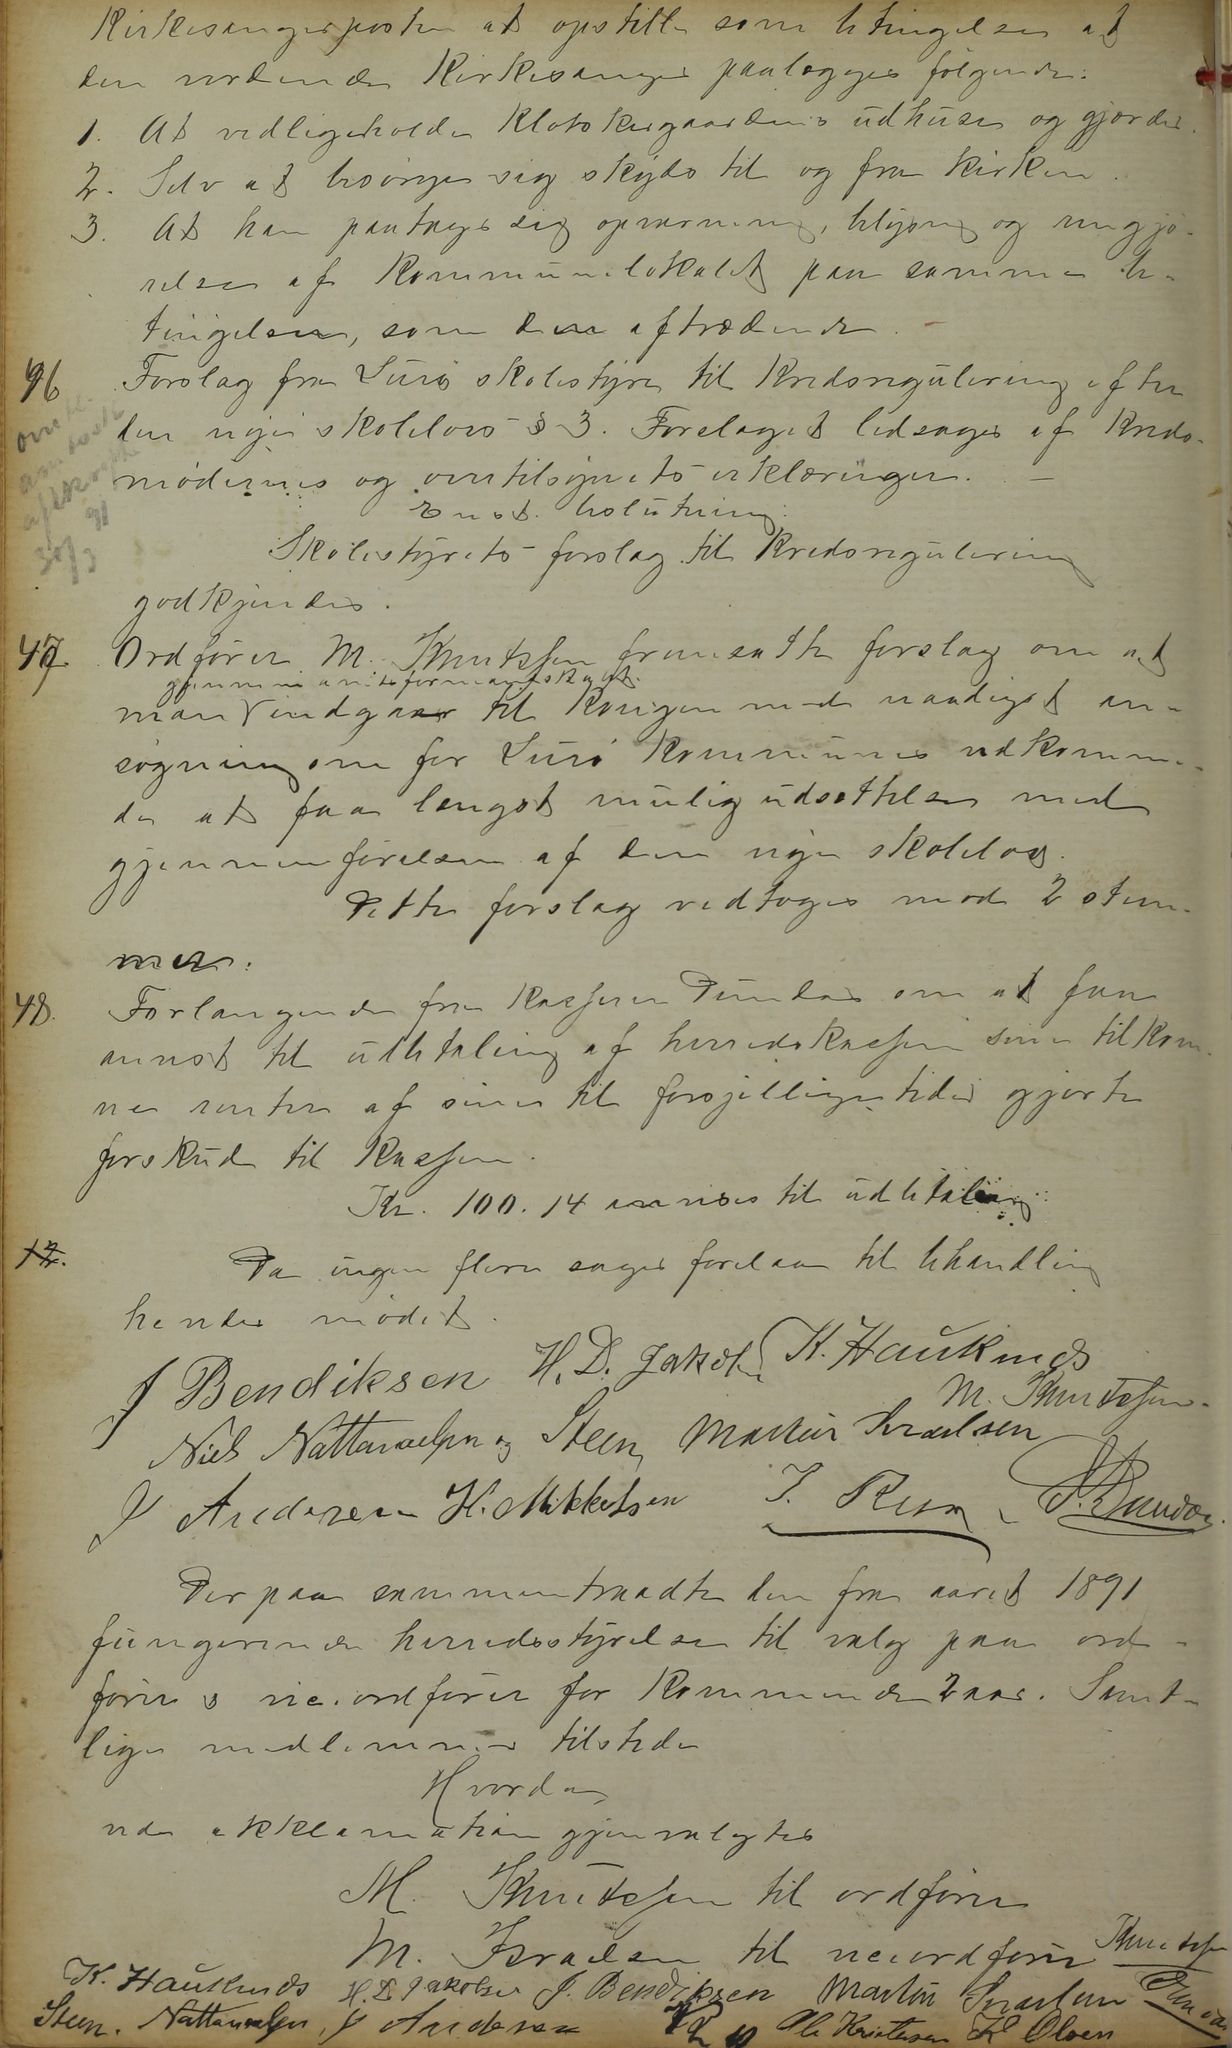 Kirkesangerposten at opstille som betingelser at
den vordende Kirkesanger paalægges følgende:
1. At vedligeholde Klokkergaardens udhuse og gjærder.
2. Selv at besørge sig skyds til og fra kirken.
3. At han paatager sig opvarmning, belysning og rengjø-
relse af Kommunelokalet paa samme be-
tingelser, som den aftrædende.
46 Forslag fra Lurø skolestyre til Kredsregulering efter
den nye skolelovs § 3. Forslaget ledsages af Kreds-
mødernes og overtilsynets erklæringer. -
Enst. beslutning:
Skolestyrets forslag til Kredsregulering
godkjendes.
47. Ordfører M. Knutssen fremsatte forslag om at
gjennem amtsformandskabet
man indgaar til Kongen med naadigst an-
søgning om for Lurø Kommunes vedkommen-
de at faa længst mulig udsættelse med
gjennemførelsen af den nye skolelov.
Dette forslag vedtoges mod 2 stem-
mer.
48. Forlangende fra Kasserer Dundas om at faa
anvist til udbetaling af herredskassen sine tilkom-
ne renter af sine til forskjellige tider gjorte
forskud til Kassen.
Kr. 100.14 anvises til udbetaling
Da ingen flere sager forelaa til behandling
hævdes mødet.
J Bendiksen H. D. Jakobsen K. Hauknes
M. Knutssen.
Niels Nattanaelsen Steen, Martin Israelsen
J Andersen H. Mikkelsen J. Dundas
Derpaa sammentraadte den fra aaret 1891
fungerende herredsstyrelse til valg paa ord-
fører & viceordfører for Kommende 2 aar. Samt-
lige medlemmer tilstede
Hvorda
ved akklamation gjenvalgtes
M. Knutssen til ordfører
M. Israelsen til viceordfører Knutssen
K. Hauknes H. D. Jakobsen J. Bendiksen Martin Israelsen Dundas
Steen. Nattanaelsen, J Andersen Ole Kristensen K Olsen